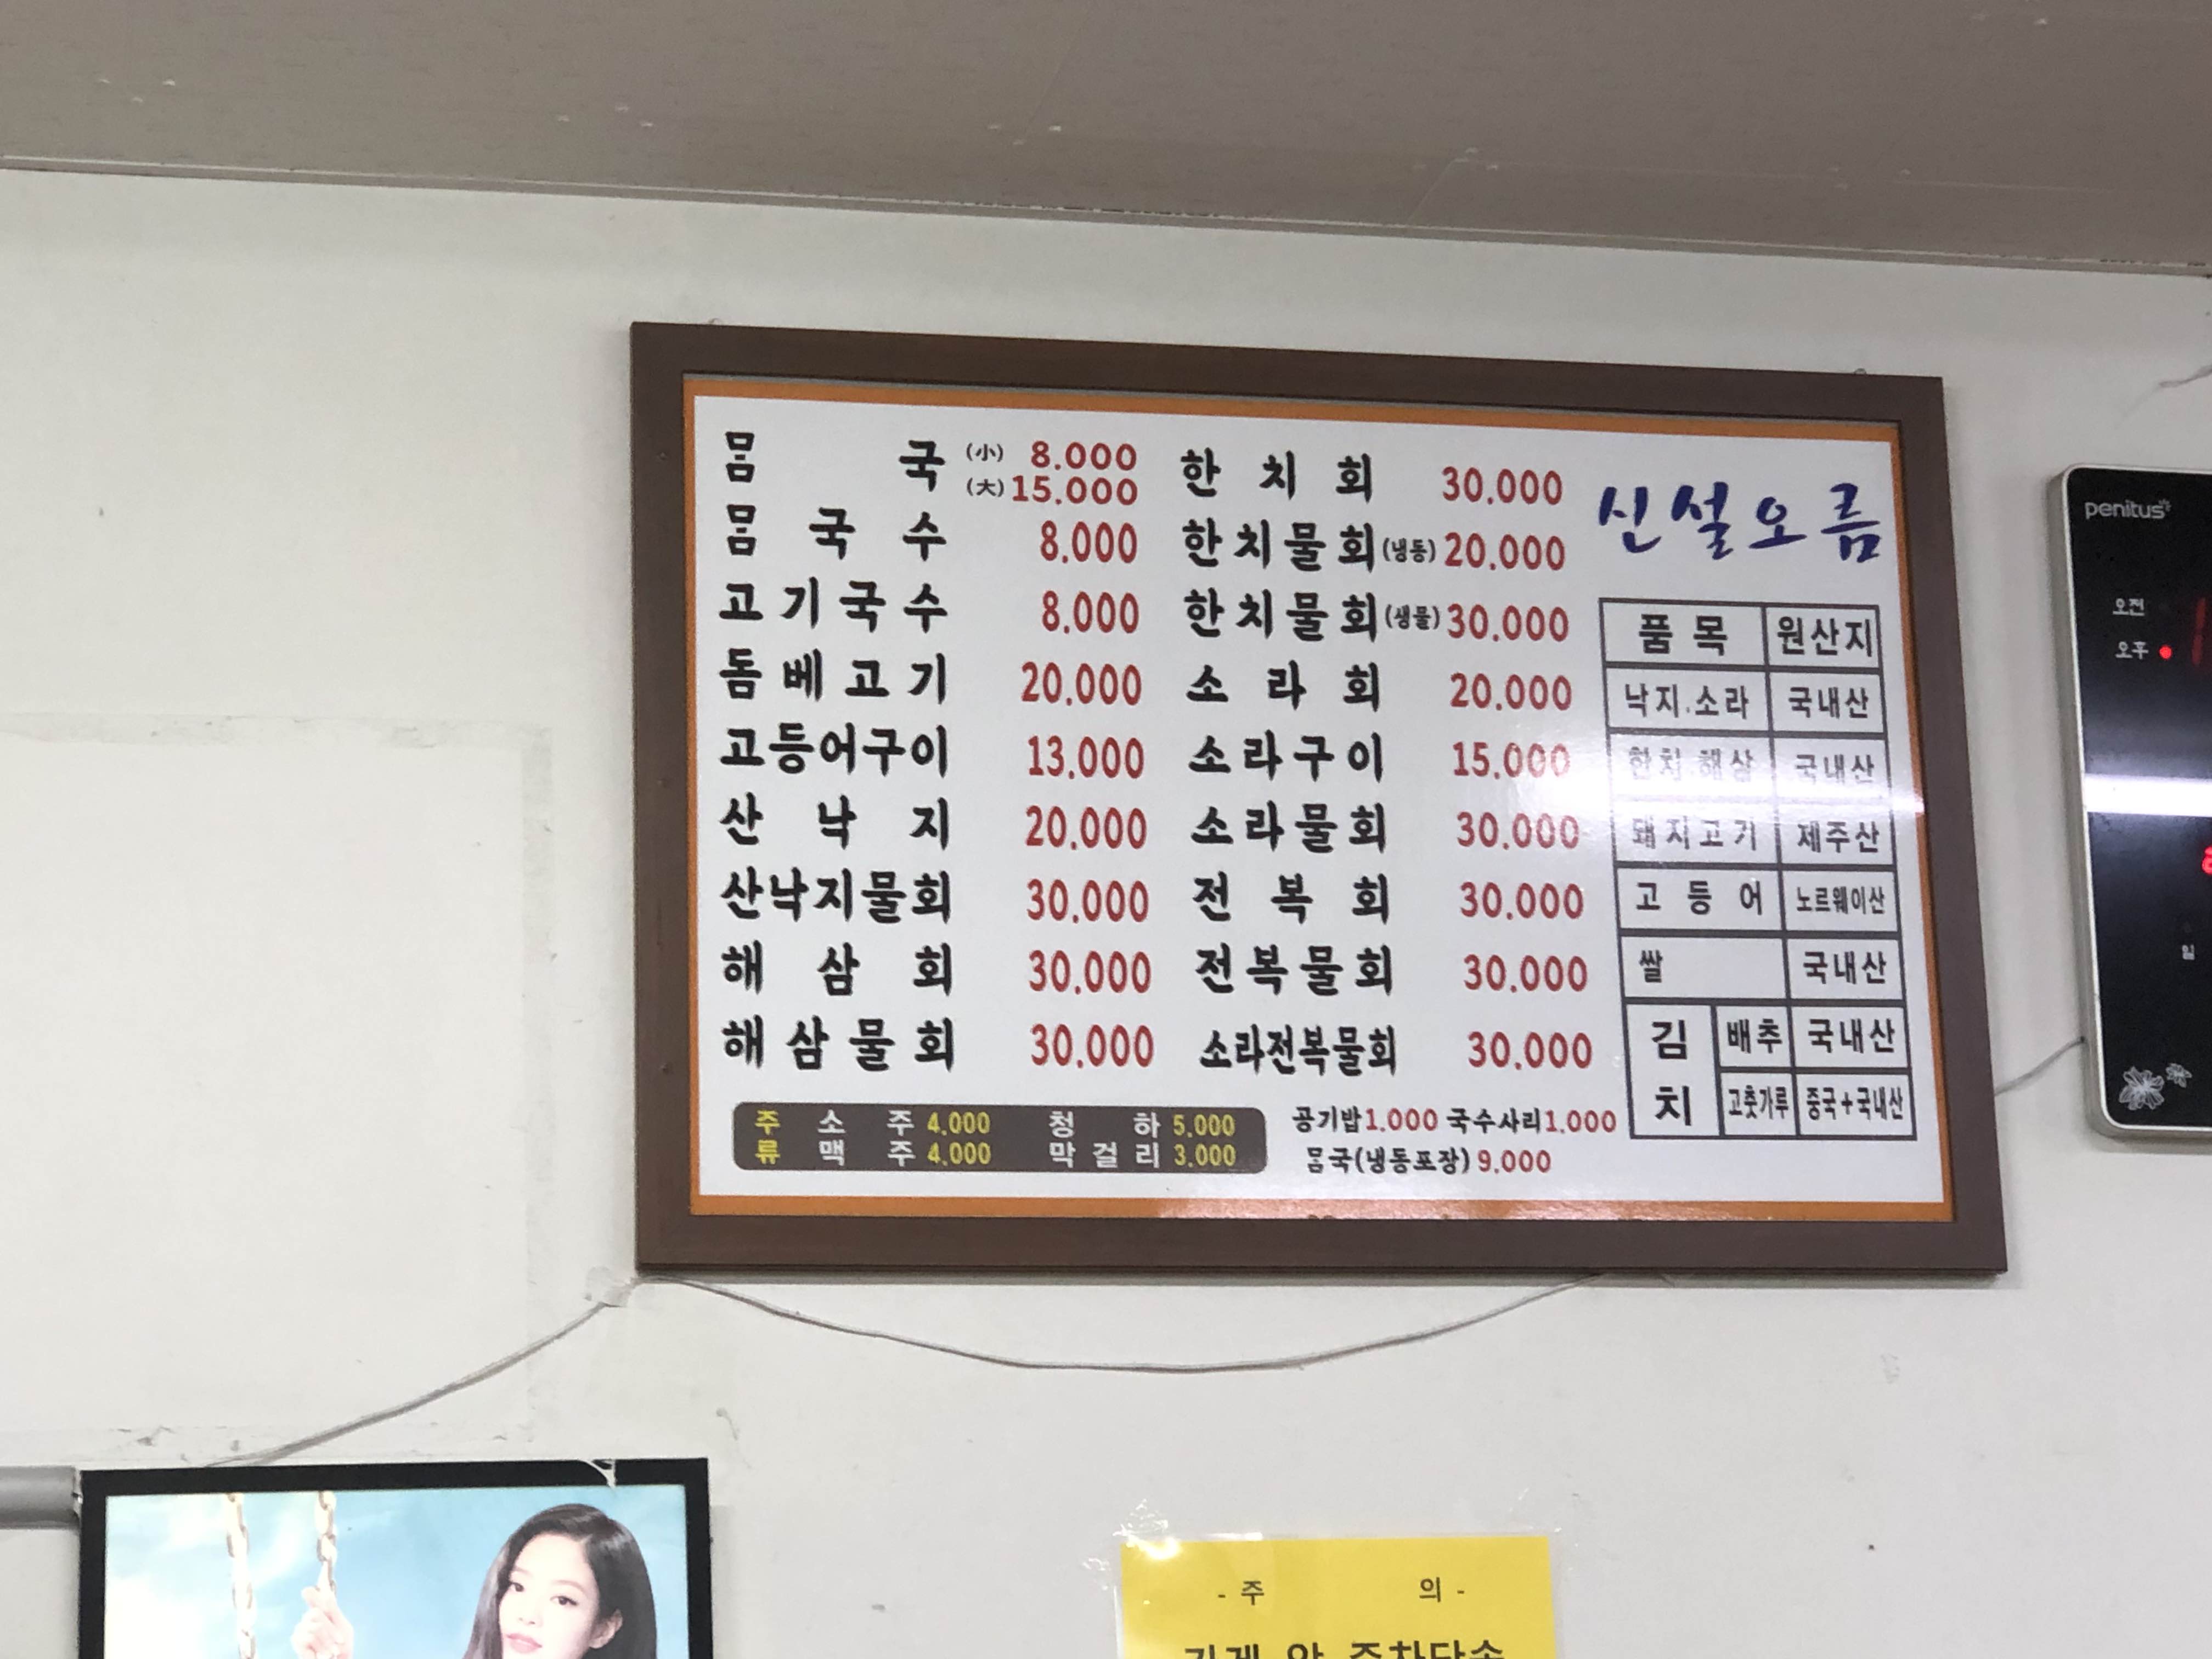 몸국 (小) 8.000
(大) 15.000
몸국수 8.000
고기국수 8.000
돔베고기 20.000
고등어구이 13.000
산낙지 20.000
산낙지물회 30.000
해삼회 30.000
해삼물회 30.000
한치회 30.000
한치물회(냉동) 20.000
한치물회(생물) 30.000
소라회 20.000
소라구이 15.000
소라물회 30.000
전복회 30.000
전복물회 30.000
소라전복물회 30.000
신설오름
품목 원산지
낙지.소라 국내산
한치.해삼 국내산
돼지고기 제주산
고등어 노르웨이산
쌀 국내산
김치 배추 국내산
고춧가루 중국+국내산
주류 소주 4.000 청하 5.000
맥주 4.000 막걸리 3.000
공기밥 1.000 국수사리 1.000
몸국(냉동포장) 9.000
penitus
오전
오후
일
- 주 의 -
가게 앞 주차단속